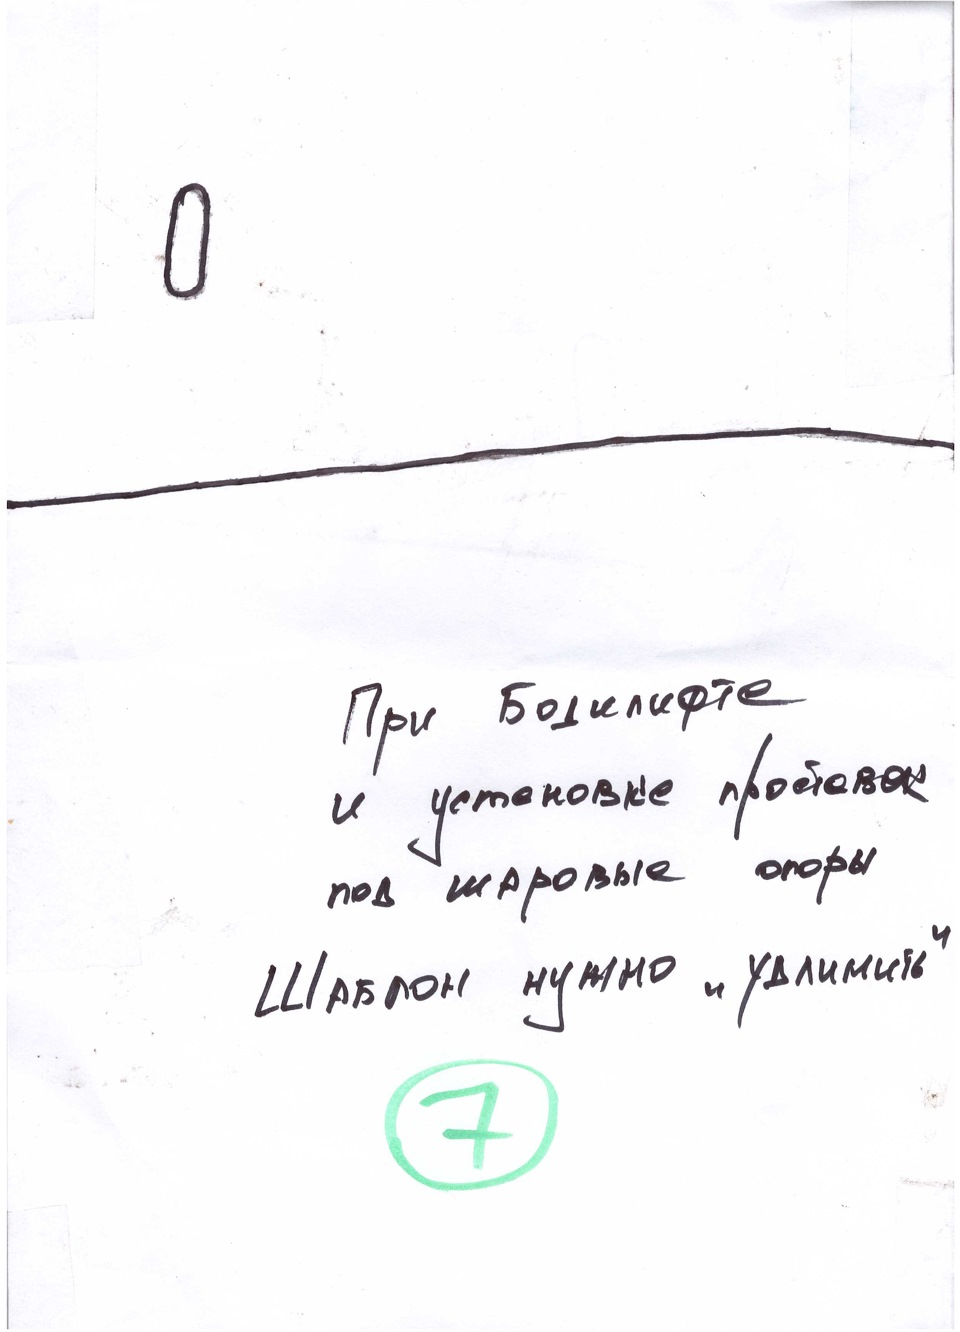 При Бодилифте
и установке проставок
под шаровые опоры
Шаблон нужно „удлинить“
7